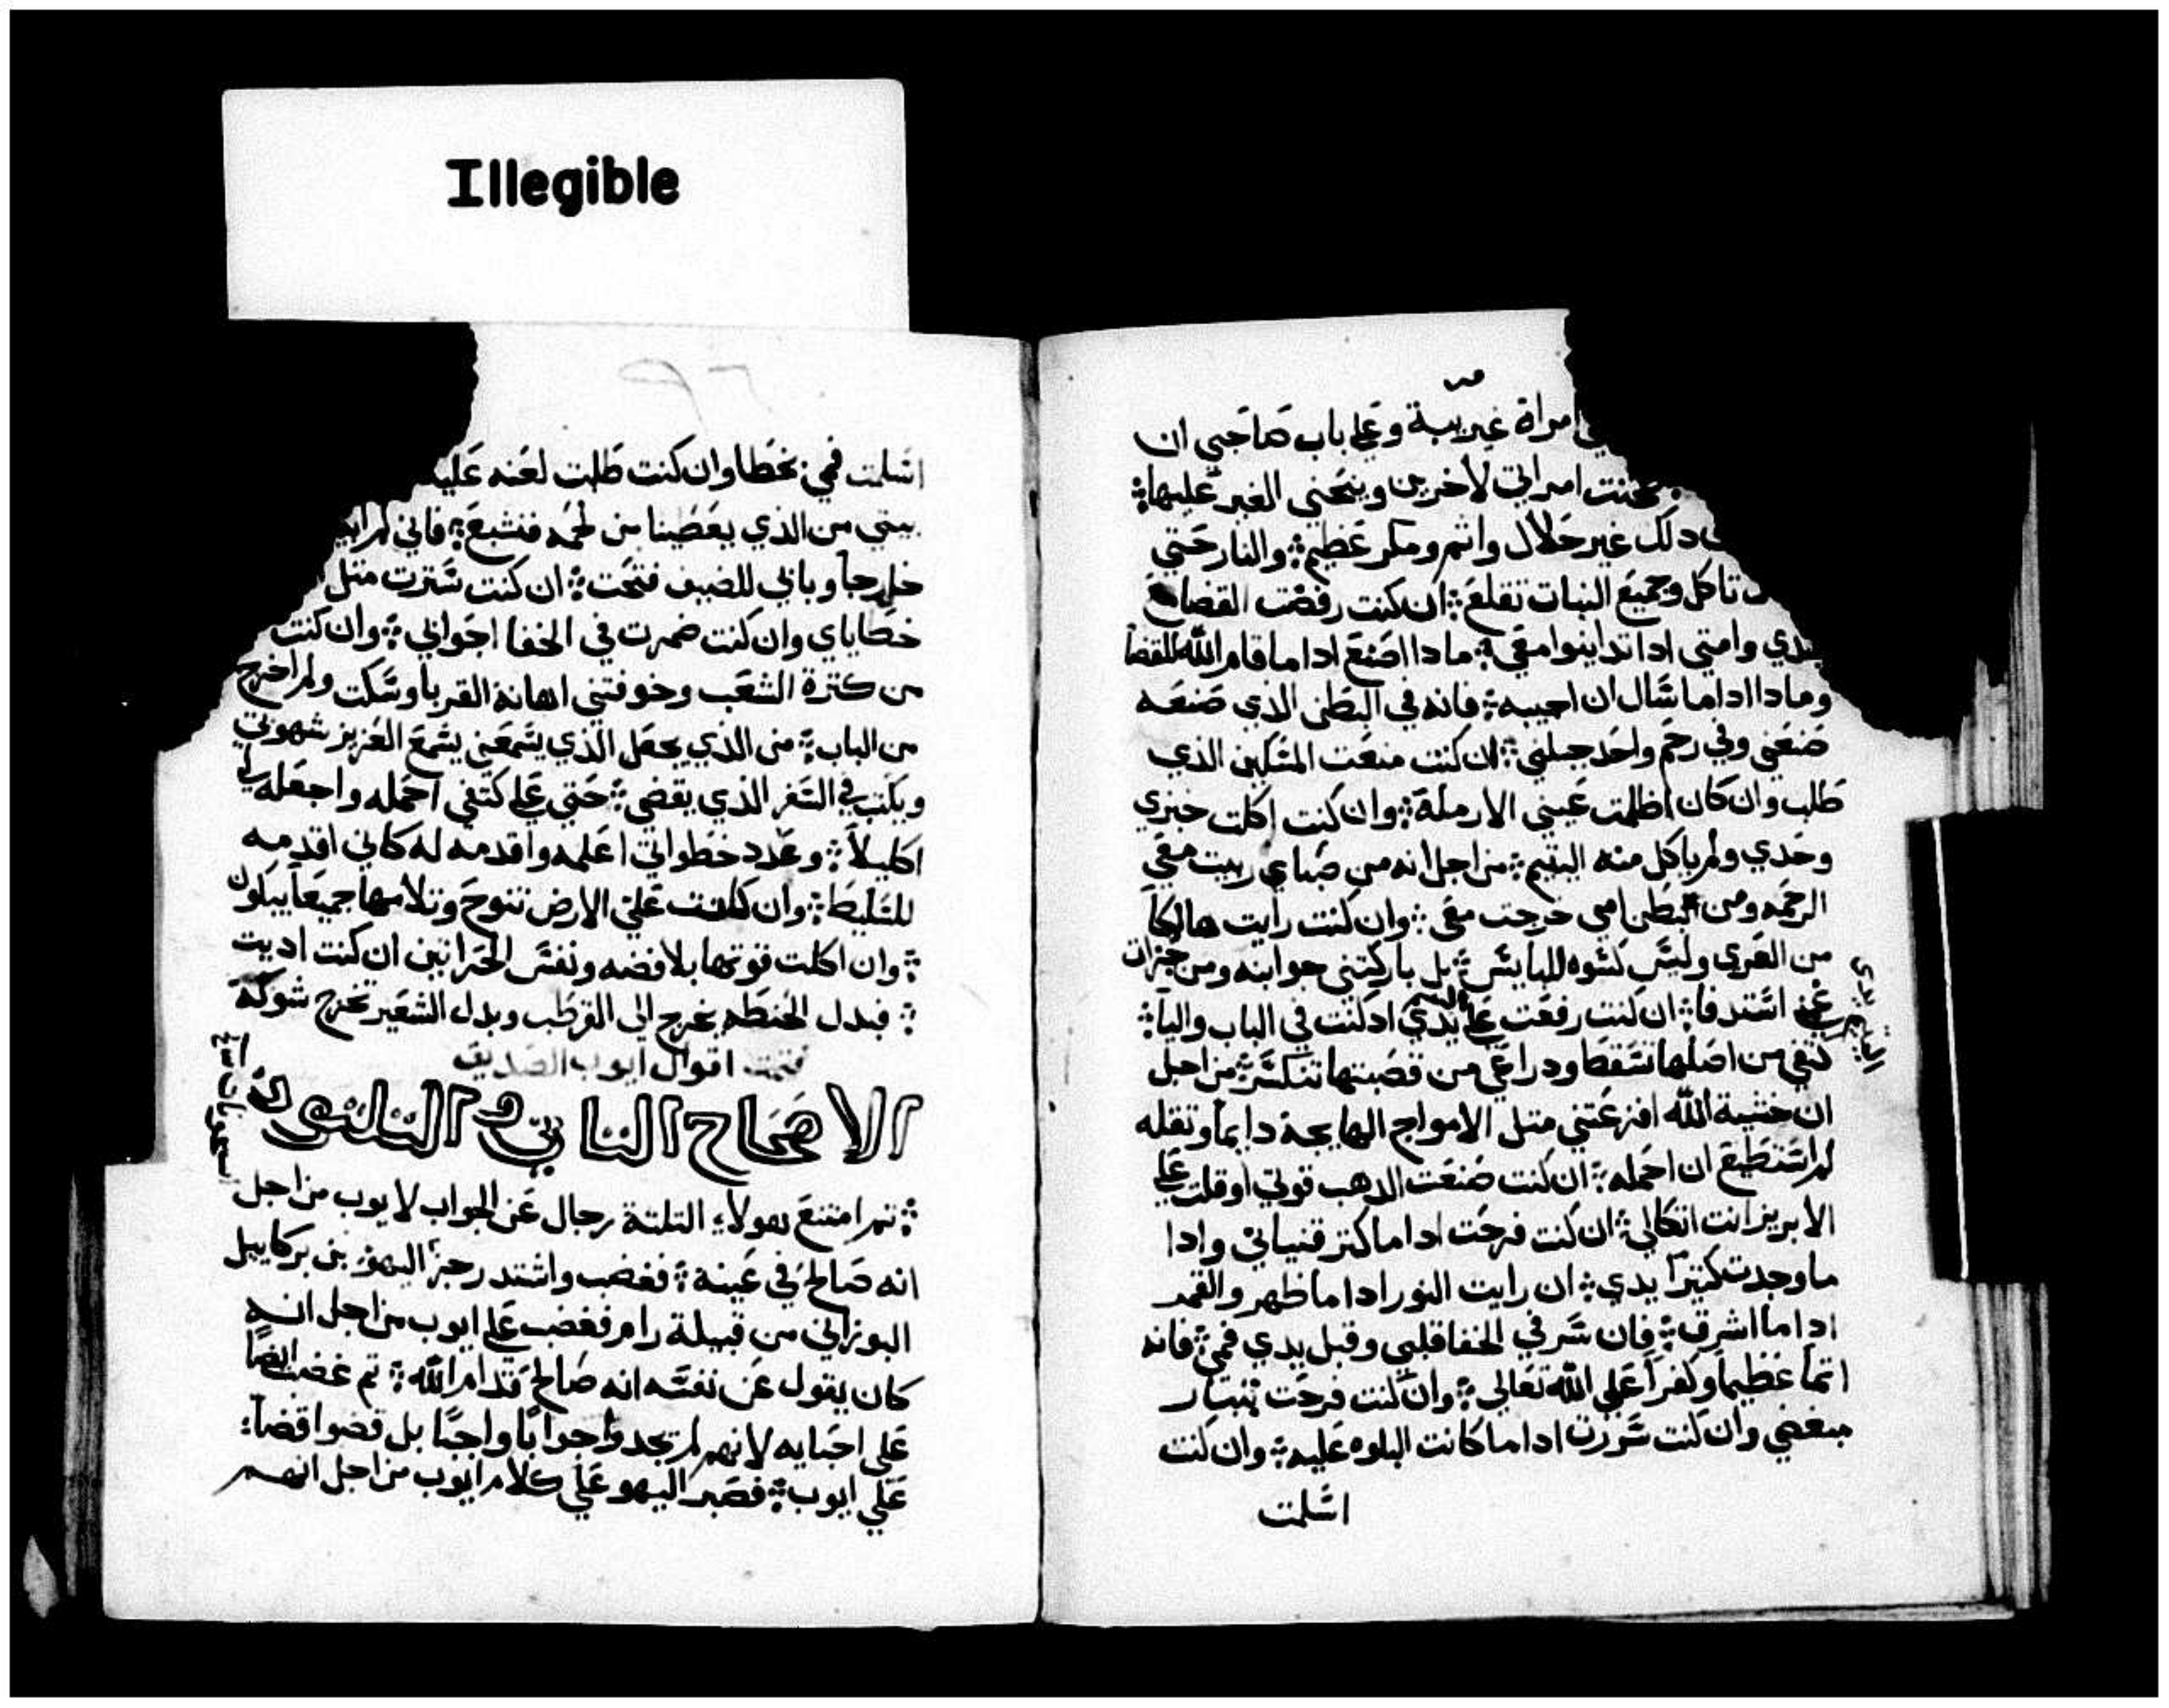 Illegible
امراة غريبة وعلى باب صاحبي ان
امراتي لاخرين وينحني الغير عليها
دلك غير حلال واثم ومكر عظيم والنار حتي
تاكل وجميع النبات تقلع ان كنت رفضت القضا مع
عبدي وامتي ادا تداينوا معي مادا اصنع ادا ما قام الله للقضا
ومادا ادا ما سال ان اجيبه فانه في البطن الذي صنعه
صنعني وفي رحم واحد جبلني ان كنت منعت المسكين الذي
طلب وان كان اظلمت عيني الارملة وان كنت اكلت خبزي
وحدي ولم ياكل منه اليتيم من اجل انه من صباي ربيت معي
الرحمه ومن بطن امي خرجت معي وان كنت رايت هالكا
من العري وليس كسوه للبايس بل باركتني جوانبه ومن جزات
غنمي استدفا ان كنت رفعت على اليتيم يدي اد كنت في الباب واليا
كتفي من اصلها تسقط ودراعي من قصبتها تنكسر من اجل
ان خشية الله افزعتني متل الامواج الهايجة دايما وتقله
لم استطيع ان احمله ان كنت صنعت الدهب قوتي او قلت على
الابريز انت اتكالي ان كنت فرحت ادا ما كتر قنياني وادا
ما وجدت كتيرا يدي ان رايت النور ادا ما ظهر والقمر
ادا ما اشرق فان سر في الخفا قلبي وقبل يدي فمي فانه
اتما عظيما وكفرا على الله تعالي وان كنت فرحت
مبغضي وان كنت سررت ادا ما كانت البلوه عليه وان كنت
اسلمت
٩٦
اسلمت فمي بخطا وان كنت طلبت لعنه عليه
بيتي من الذي يعطينا من لحمه فنشبع فاني لم
خارجا وبابي للضيف فتحت ان كنت سترت متل
خطاياي وان كنت ضمرت في الخفا اجواني وان كنت
من كترة الشعب وخوفتني اهانة القربا وسكت ولم اخرج
من الباب من الذي يجعل الذي يسمعني يسمع العزيز شهوتي
ويكتب في السفر الذي يقضي حتي على كتفي احمله واجعله لي
اكليلا وعدد خطواتي اعلمه واقدمه له كاني اقدمه
للسليط وان كانت علي الارض تنوح وتلامها جميعا يبكون
وان اكلت قوتها بلا فضه ونفس الحراتين ان كنت اديت
فبدل الحنطه يخرج الى القرطب وبدل الشعير تخرج شوكة
تمت اقوال ايوب الصديق
الاصحاح التاني والتلتون
تم امتنع هولاء التلتة رجال عن الجواب لايوب من اجل
انه صالح في عينة فغضب واشتد رجز اليهو بن بركاييل
البوزاني من قبيلة رام فغضب على ايوب من اجل انه
كان يقول عن نفسه انه صالح قدام الله تم غضب ايضا
على احبايه لانهم لم يجدوا جوابا واجبا بل قضوا قضا
على ايوب فصبر اليهو على كلام ايوب من اجل انهم